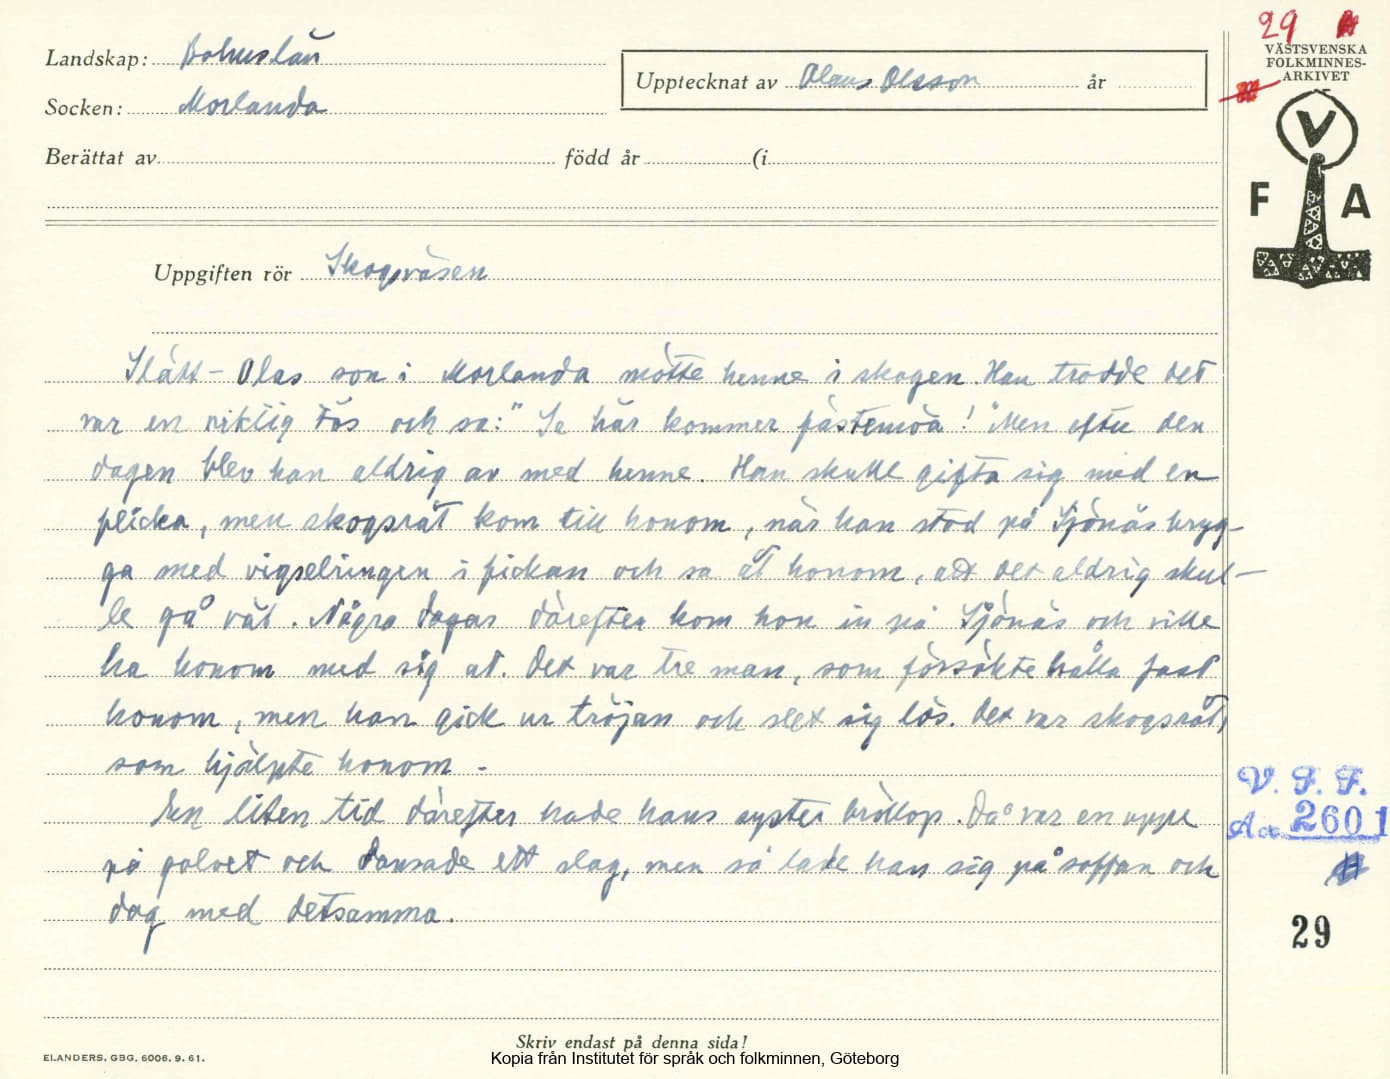 Landskap: Bohuslän
Socken: Morlanda
Upptecknat av Olaus Olsson år
Berättat av född år (i
29
VÄSTSVENSKA
FOLKMINNES-
ARKIVET
V
F A
Uppgiften rör Skogsväsen
Slätt-Olas son i Morlanda mötte henne i skogen. Han trodde det
var en riktig tös och sa: "Se här kommer fästemöa!" Men efter den
dagen blev han aldrig av med henne. Han skulle gifta sig med en
flicka, men skogsråt kom till honom, när han stod på Sjönäs bryg-
ga med vigselringen i fickan och sa åt honom, att det aldrig skul-
le gå väl. Några dagar därefter kom hon in på Sjönäs och ville
ha honom med sig ut. Det var tre man, som försökte hålla fast
honom, men han gick ur tröjan och slet sig lös. Det var skogsråt,
som hjälpte honom.
En liten tid därefter hade hans syster bröllop. Då var en uppe
på golvet och dansade ett slag, men så lade han sig på soffan och
dog med detsamma.
V. F. F.
Aa 2601
29
Skriv endast på denna sida!
ELANDERS, GBG, 6006. 9. 61.
Kopia från Institutet för språk och folkminnen, Göteborg